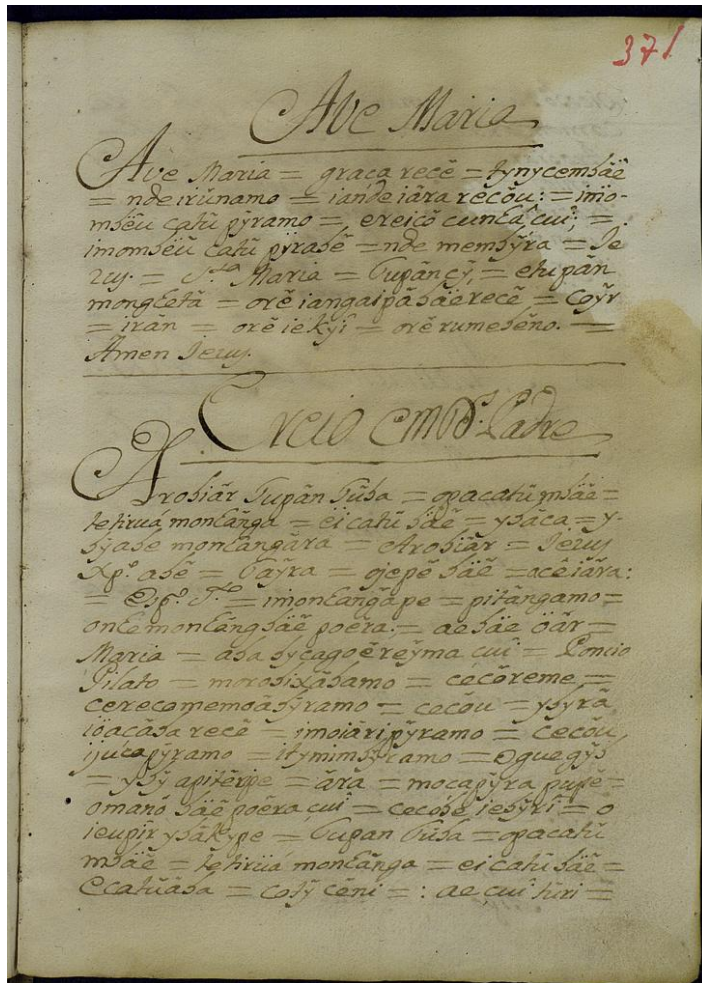 371
Ave Maria
Ave Maria = graça recẽ = tynycembäẽ
= nde irũnamo = iande iára recõu: = imo-
mbẽu catũ pỹramo = ereicõ cuntã cuî; =
imombẽu catũ pyrabẽ = nde membỹra = Je
zus. = S.ta Maria = Tupãncỹ, = etupãn
mongẽtã = orẽ iangaipãbäẽ recẽ = coỹr
= irãn = orẽ iekyî = orẽ rumebẽno. =
Amen Jezus.
Creio em Ds. Padre
Arobiãr Tupãn Tũba = opacatũ mbäẽ =
tetiruá, montãnga = eicatũ bäẽ = ybãca = y-
bỹabe montãngãra = Arobiãr = Jezus
Xp.o abẽ = Taỹra = ojepẽ bäẽ = acê iãra:
= Esp.o S.to = imontangãpe = pitangamo =
ontemontãngbäẽ poẽra: = aebäe öãr =
Maria = abá bycagoẽreỹma cuî = Poncio
Pilato = morobixãbamo = cecõreme =
cerecomemoãbỹramo = cecõu = ybyrã
ioacãba recẽ = imoiãripỹramo = cecõu,
ijucapỹramo = itymimbyramo = Oguegỹb
= ybỹ apitẽripe = ãrã = mocapỹra pupe =
omanõ bäẽ poẽra, cuî = cecobẽ iebỹri = o
ieupir ybãkype = Tupan Tũba = opacatũ
mbäẽ = tetiruá montãnga = eicatũ bäẽ =
Ecatuãba = cotỹ cẽni = : ae, cuî tũri =